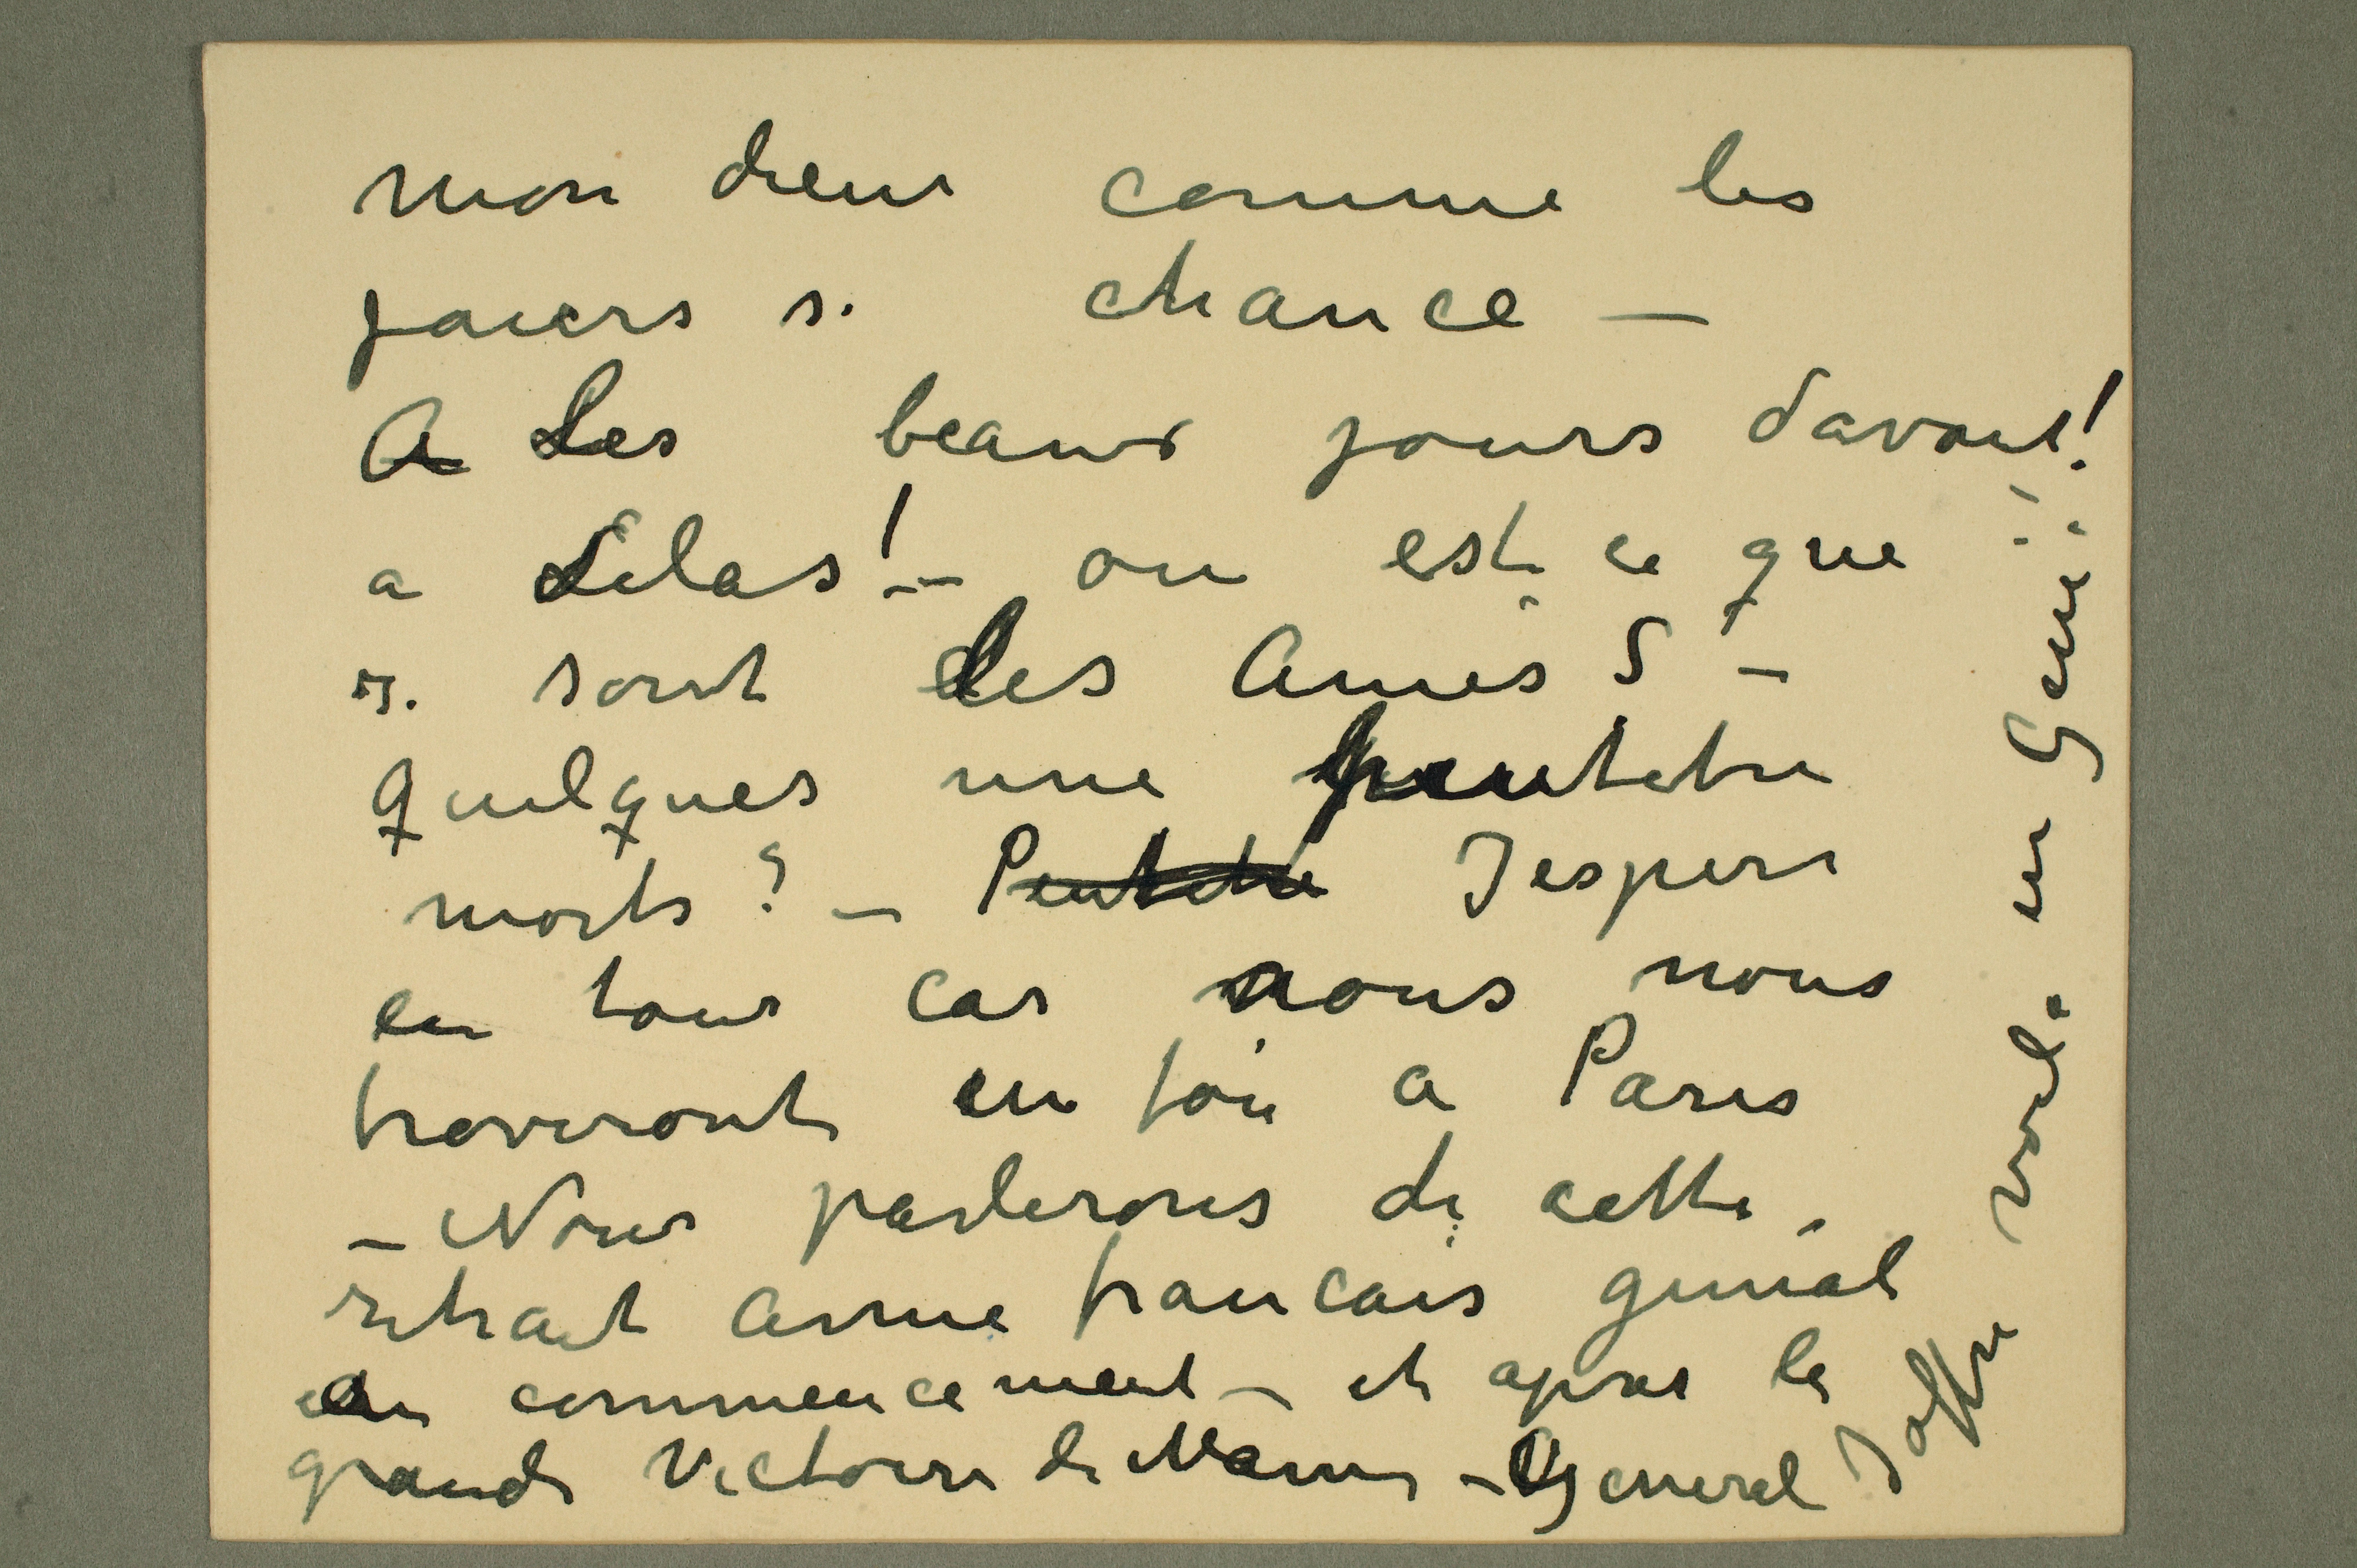 mon dieu comme les
jouers se chance —
A Les beaux jours davant!
a Lilas! — ou est ce que
se sont les Amis? —
quelques une peutetre
morts? — Peutetre Jespere
en tous cas nous nous
troveront en foi a Paris
— Nous parlerons de cette
retrait arme francais genial
au commencement — et apres la
grande Victoire de Marne — General
Joffre voila un Genie!!